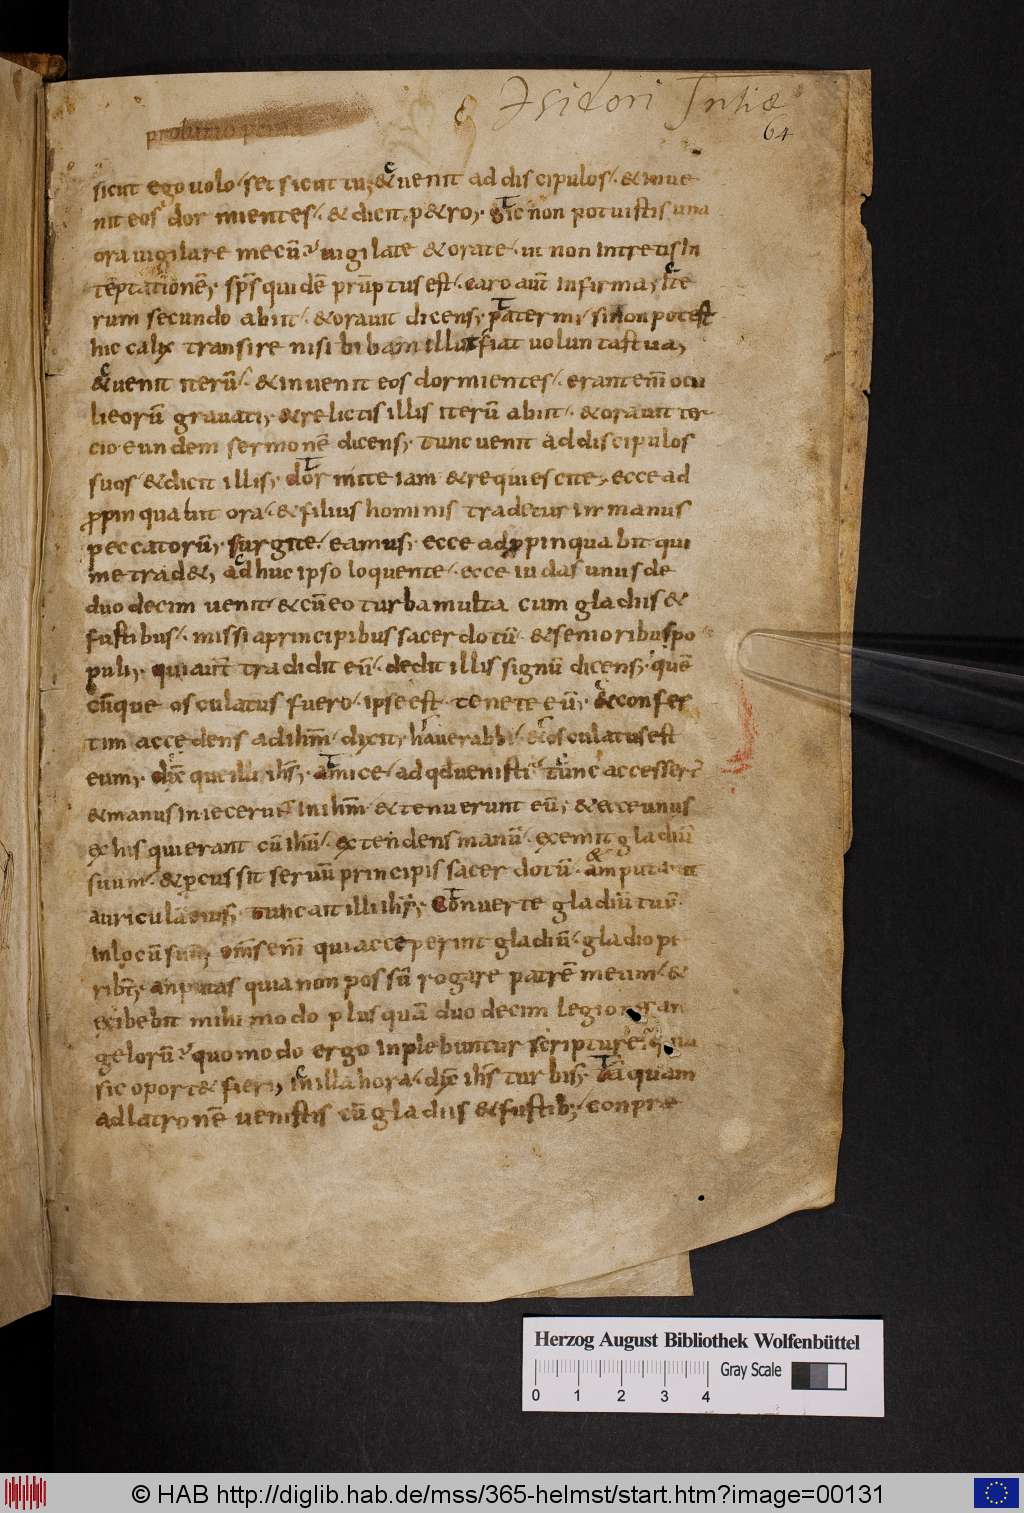 Isidori Sntiæ
64
sicut ego uolo. set sicut tu; & uenit ad discipulos. & inue
nit eos dormientes. & dicit p&ro; Sic non potuistis una
ora uigilare mecū? uigilate & orate. ut non intretis In
tēptationē; sp̄s quidē prūptus est. caro aūt Infirma; Ite
rum secundo abiit. & orauit dicens; pater mi. si non potest
hic calix transire nisi bibam illū fiat uoluntas tua;
& uenit iterū. & inuenit eos dormientes. erant eni̅ ocu
li eorū grauati; & relictis illis iterū abiit. & orauit ter
cio eundem sermonē dicens; tunc uenit ad discipulos
suos. & dicit illis; dormite iam & requiescite. ecce ad
ꝓpinquabit ora. & filius hominis tradetur in manus
peccatorū; surgite. eamus; ecce adꝓpinquabit qui
me trad&; adhuc ipso loquente. ecce iudas unus de
duodecim uenit. & cū eo turba multa cum gladiis &
fustibus. missi a principibus sacerdotū. & senioribus po
puli; qui aūt tradidit eū. dedit illis signū dicens; quē
cūque osculatus fuero. ipse est. tenete eū; & confes
tim accedens ad ih̄m. dixit; haue rabbi. & osculatus est
eum; dix̄ que illi ih̄s; amice. ad qd uenisti? tunc accesser̄
& manus iniecerunt in ih̄m. & tenuerunt eū; & ecce unus
ex his qui erant cū ih̄u. extendens manū. exemit gladiū
suum. & ꝑcussit seruū principis sacerdotū. & amputauit
auriculā eius; tunc ait illi ih̄s; Conuerte gladiū tuū
in locū suū; om̄s eni̅ qui acceperint gladiū. gladio pe
ribt̄; an putas quia non possū rogare patrē meum. &
exibebit mihi modo plus quā duodecim legiones an
gelorū? quomodo ergo inplebuntur scripturę. quia
sic oport& fieri; in illa hora. dix̄ ih̄s turbis; Tā quam
ad latronē uenistis cū gladiis & fustib; conpræ
Herzog August Bibliothek Wolfenbüttel
Gray Scale
0 1 2 3 4
© HAB http://diglib.hab.de/mss/365-helmst/start.htm?image=00131